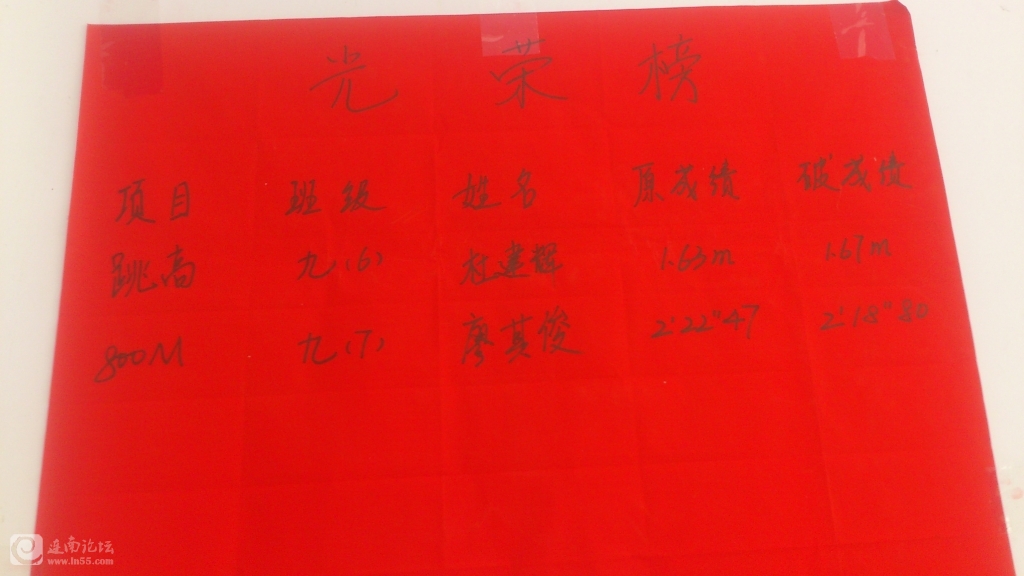 光荣榜
项目 班级 姓名 原成绩 破成绩
跳高 九(6) 杜建辉 1.63m 1.67m
800M 九(7) 廖其俊 2'22"47 2'18"80
连南论坛
www.ln55.com